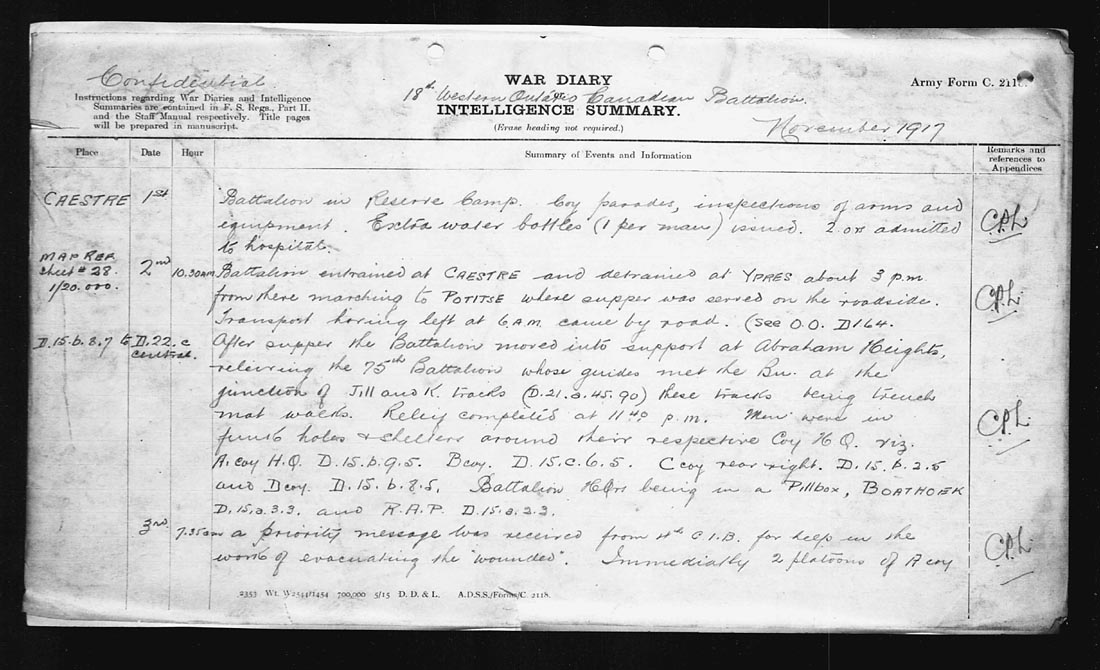 Confidential
WAR DIARY
Army Form C. 2118.
18th Western Ontario Canadian Battalion.
or
INTELLIGENCE SUMMARY.
(Erase heading not required.)
November 1917
Instructions regarding War Diaries and Intelligence
Summaries are contained in F. S. Regs., Part II.
and the Staff Manual respectively. Title pages
will be prepared in manuscript.
Place Date Hour Summary of Events and Information Remarks and
references to
Appendices
CAESTRE 1st Battalion in Reserve Camp. Coy parades, inspections of arms and
equipment. Extra water bottles (1 per man) issued. 2 or admitted
to hospital.
MAP REF
Sheet # 28.
1/20.000.
2nd 10.30am Battalion entrained at CAESTRE and detrained at YPRES about 3 p.m
from there marching to POTITSE where supper was served on the roadside.
Transport having left at 6 A.M. came by road. (See O.O. D164.
D.15.b.8.7 to D.22.c
central.
After supper the Battalion moved into support at Abraham Heights,
releiving the 75th Battalion whose guides met the Bn. at the
junction of Jill and K. tracks (D.21.a.45.90) these tracks being trench
mat walks. Releif completed at 11 40 p.m. Men were in
funk holes & shelters around their respective Coy H.Q. viz.
A. coy H.Q. D.15.b.9.5. B coy. D.15.c.6.5. C coy rear right. D.15.b.2.5
and D coy. D.15.b.8.5. Battalion HQrs being in a Pillbox, BOATHOEK
D.15.a.3.3. and R.A.P. D.15.a.2.3.
3rd 7.35am a priority message was received from 4th C.I.B. for help in the
work of evacuating the "wounded". Immediatly 2 platoons of A coy
2353 Wt. W2544/1454 700,000 5/15 D. D. & L. A.D.S.S./Forms/C. 2118.